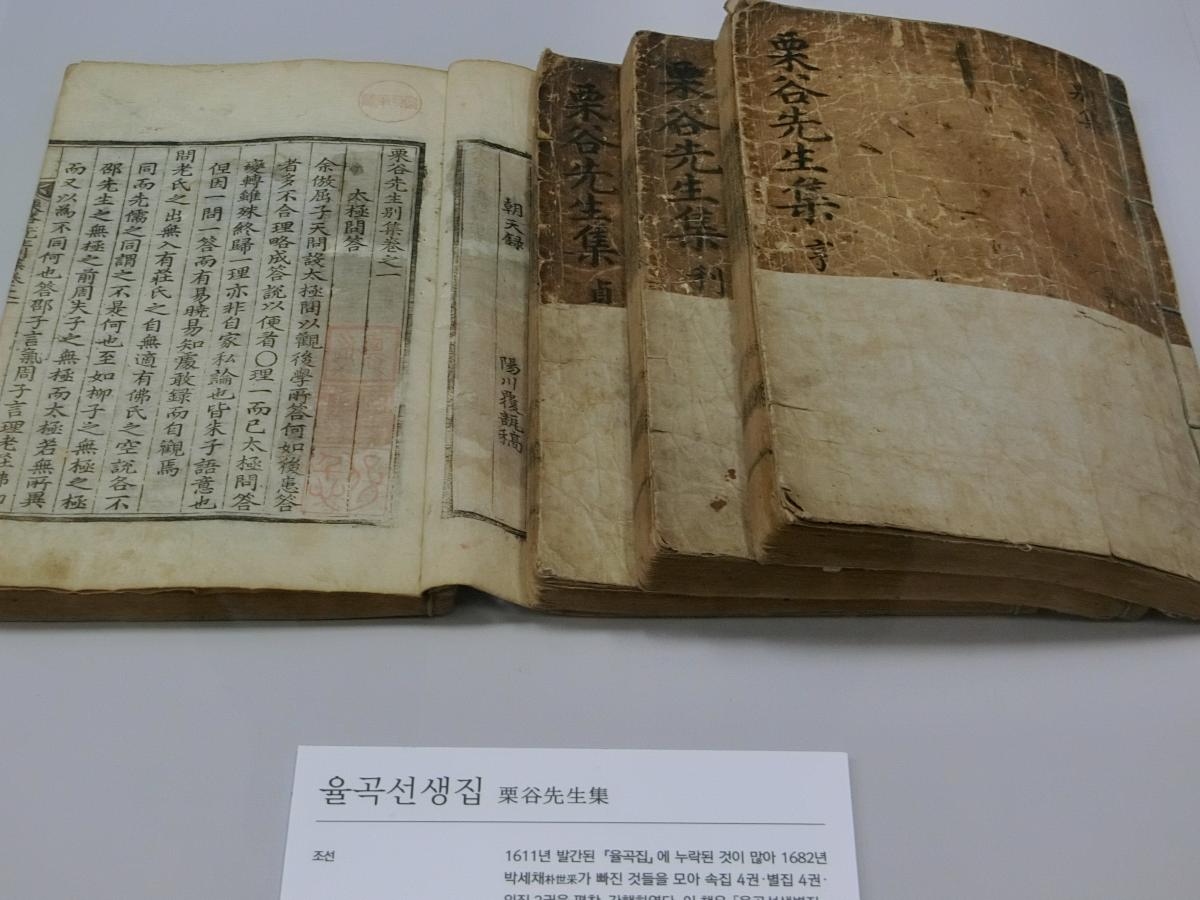 栗谷先生集 亨
栗谷先生集 利
栗谷先生集 貞
朝天録
陽川覆瓿稿
栗谷先生别集卷之一
太極問答
余倣屈子天問設太極問以觀後學所答何如後患答
者多不合理略成答說以便看○理一而已太極問答
變轉雖殊終歸一理亦非自家私論也皆朱子語意也
但因一問一答而有易曉易知處敢録而自觀焉
問老氏之出無入有莊氏之自無適有佛氏之空說各不
同而先儒之同謂之不是何也至如柳子之無極之極
邵先生之無極之前周夫子之無極而太極若無所異
而又以爲不同何也答邵子言氣周子言理老莊佛
율곡선생집 栗谷先生集
조선
1611년 발간된 『율곡집』에 누락된 것이 많아 1682년
박세채朴世采가 빠진 것들을 모아 속집 4권·별집 4권·
외집 2권을 편찬, 간행하였다. 이 책은 『율곡선생별집』